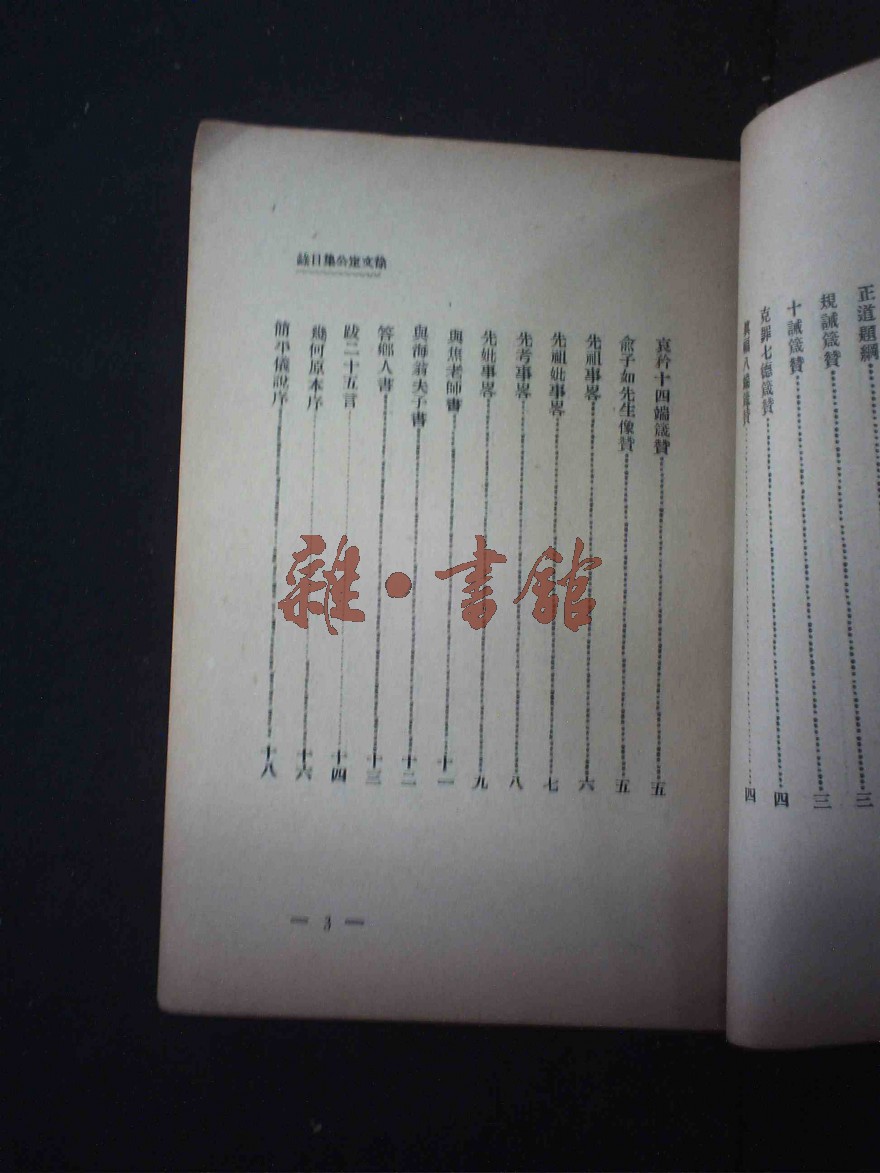 正道題綱 三
規誡箴贊 三
十誡箴贊 四
克罪七德箴贊 四
眞福八端箴贊
徐文定公集目錄
哀矜十四端箴贊 五
俞子如先生像贊 五
先祖事畧 六
先祖妣事畧 七
先考事畧 八
先妣事畧 九
與焦老師書 十一
與海翁夫子書 十二
答鄉人書 十三
跋二十五言 十四
幾何原本序 十六
簡平儀說序 十八
— 3 —
雜·書館